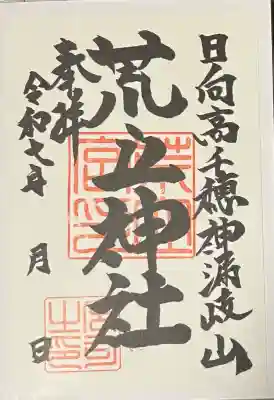 日向高千穂神漏岐山
奉拝
荒立神社
令和七年
月
日